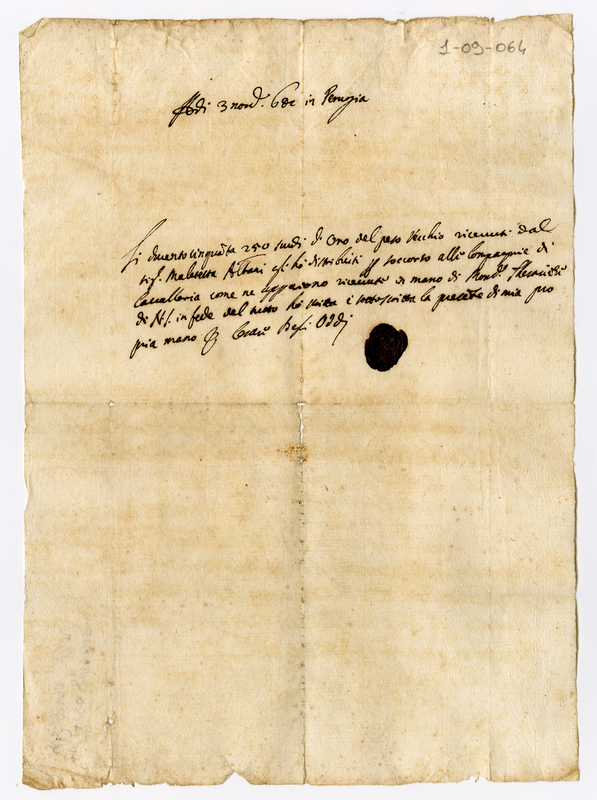 1-09-064
Adi 3 nov. in Perugia
Li duento cinquãta 250 scudi di Oro del peso vecchio riceuuti dal
sig. Malatesta Albani gli hò distribuiti p soccorso alle Compagnie di
Cavalleria come ne appaiono riceuute in mano di Mons.
di N.S. in fede del tutto hò scritta e sottoscritta la presẽte di mia pro
pria mano Oddi